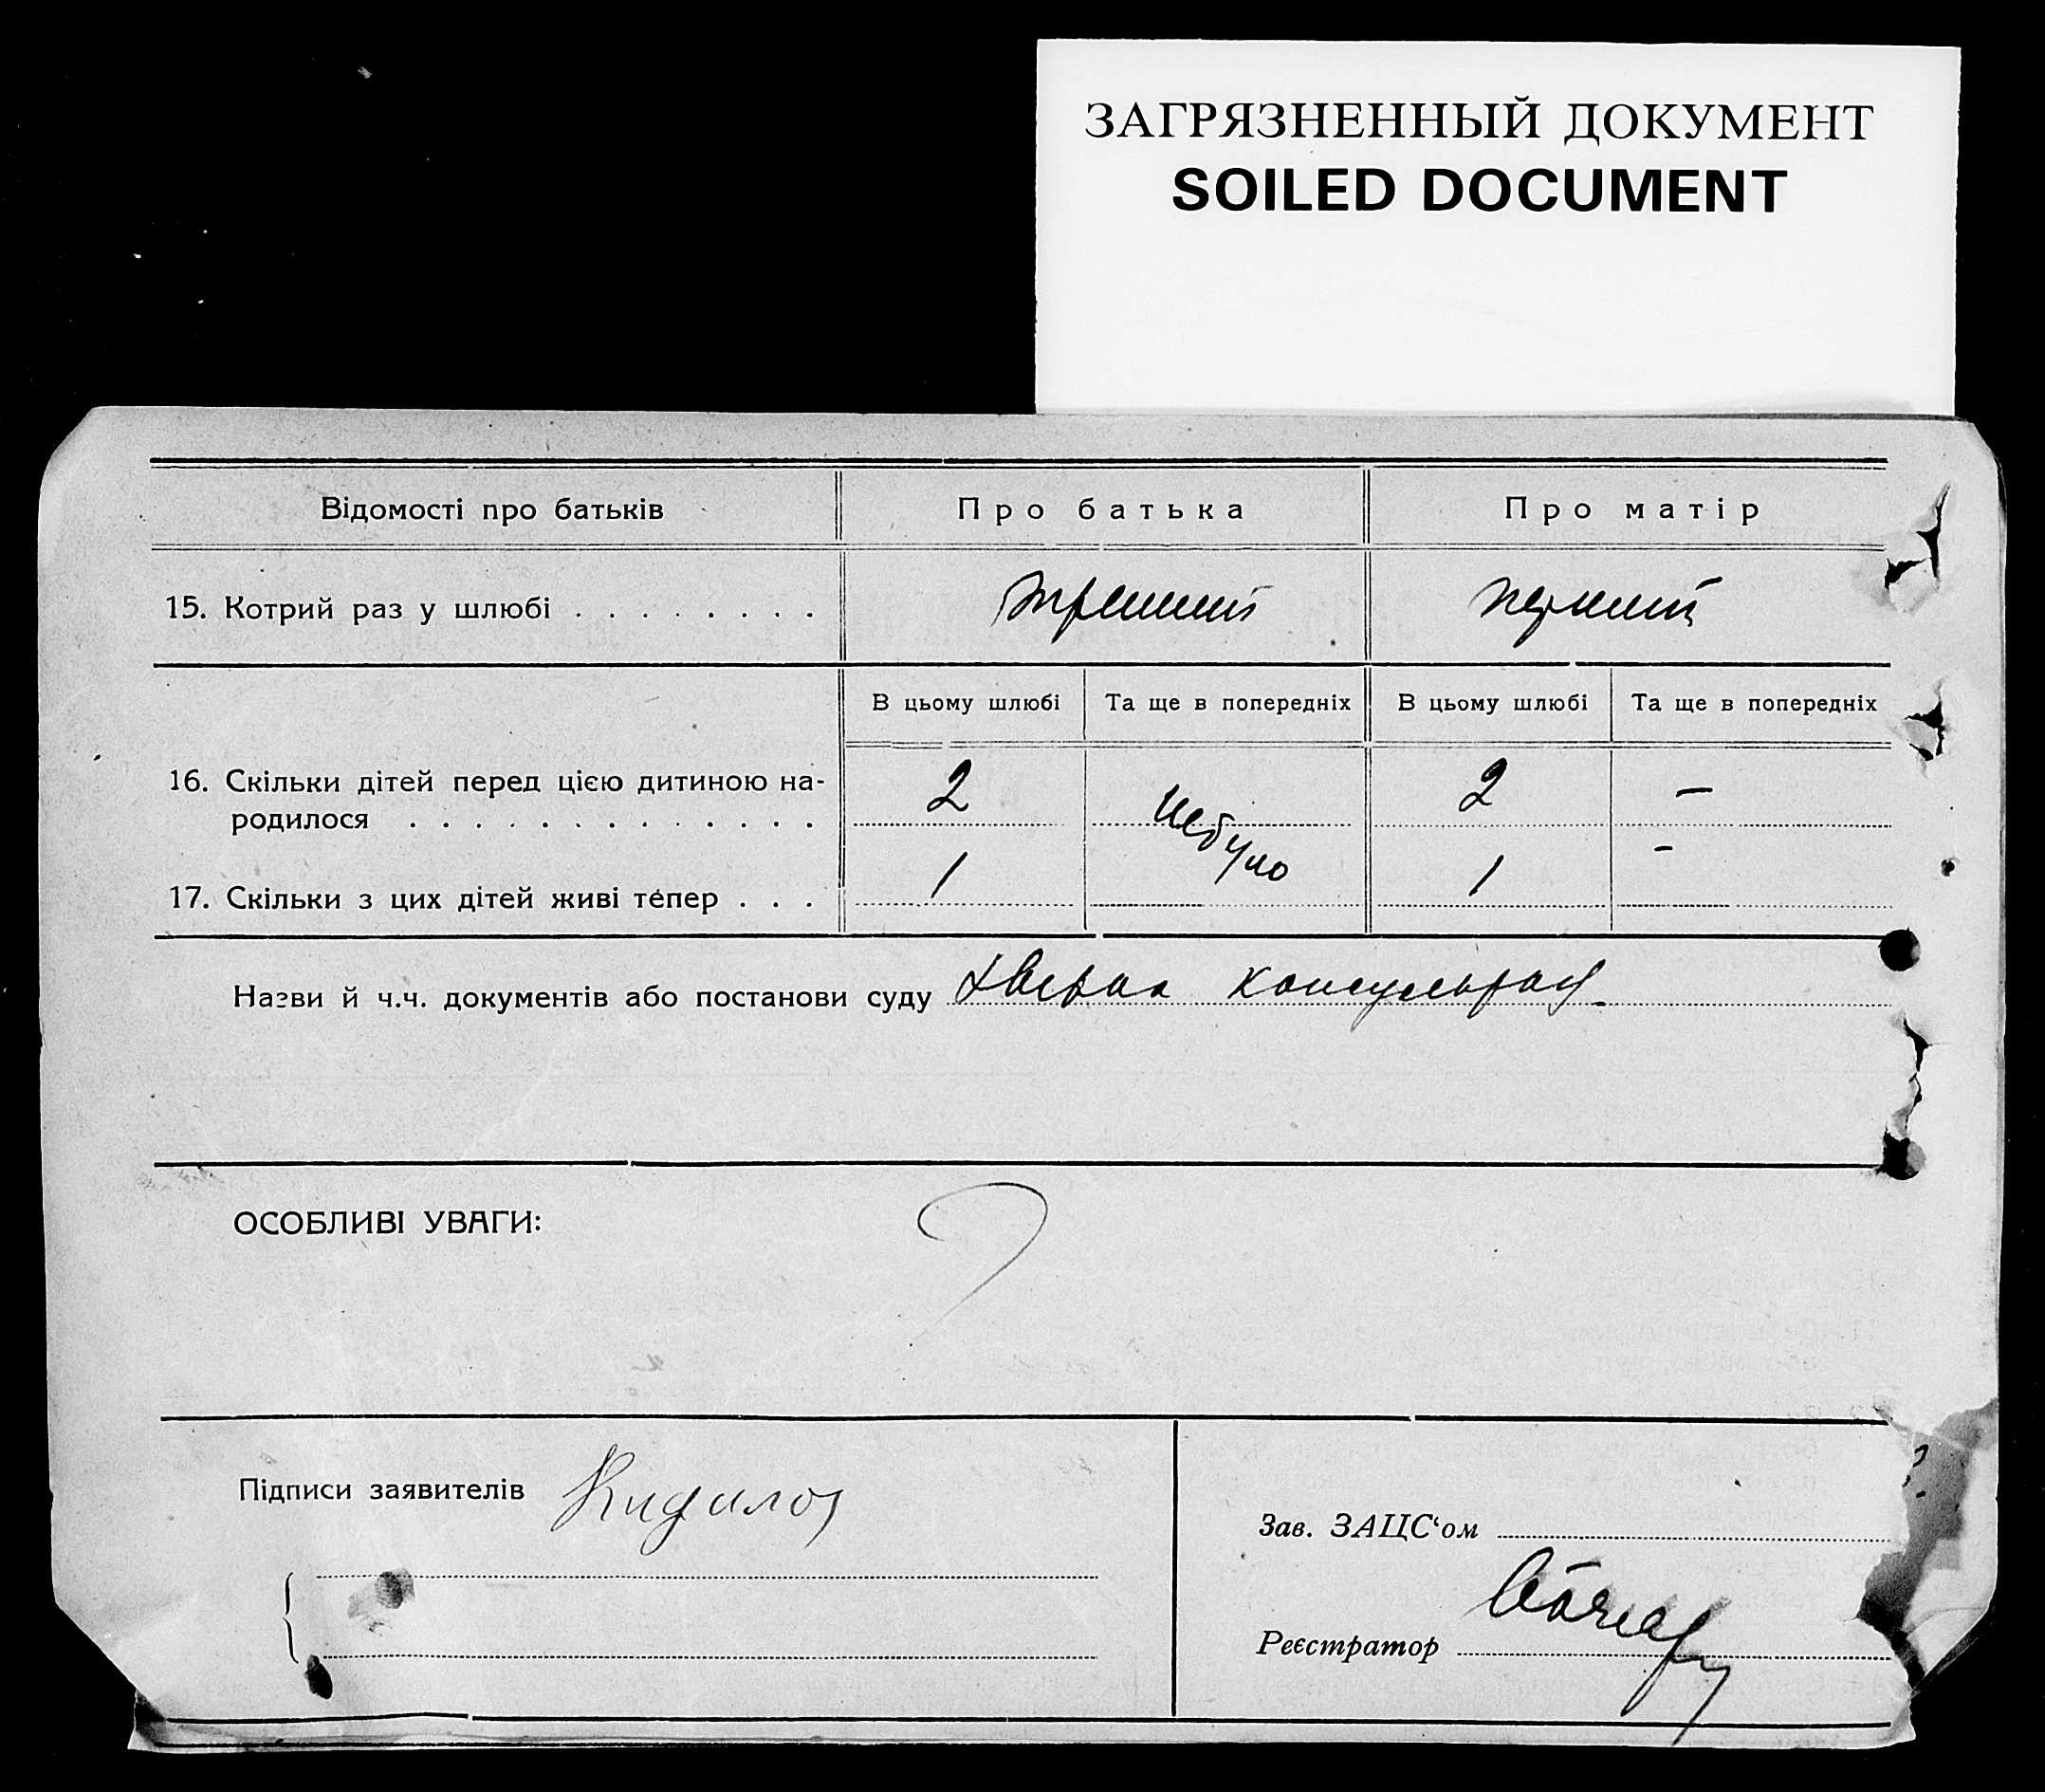 ЗАГРЯЗНЕННЫЙ ДОКУМЕНТ
SOILED DOCUMENT
Відомості про батьків
Про батька
Про матір
15. Котрий раз у шлюбі . . . . . . . .
перший
В цьому шлюбі
Та ще в попередніх
В цьому шлюбі
Та ще в попередніх
16. Скільки дітей перед цією дитиною на-
родилося . . . . . . . . . . . . .
2
небуло
2
—
17. Скільки з цих дітей живі тепер . . .
1
1
-
Назви й ч.ч. документів або постанови суду
ОСОБЛИВІ УВАГИ:
Підписи заявителів
Зав. ЗАЦС‘ом
Реєстратор